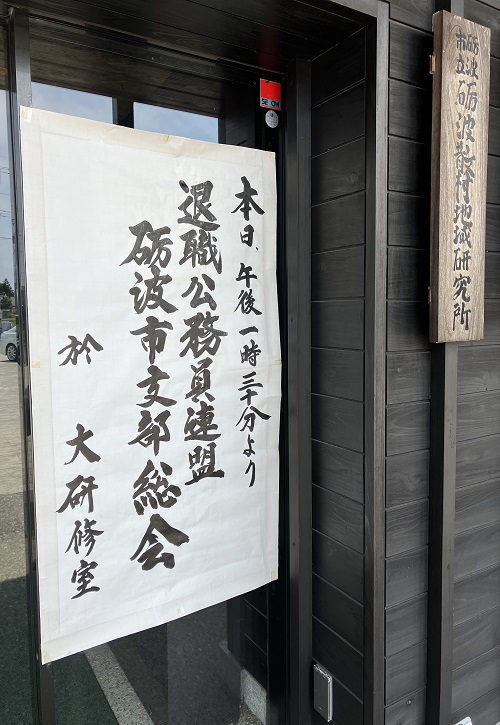 砺波市立
砺波散村地域研究所
SECOM
本日、午後一時三十分より
退職公務員連盟
砺波市支部総会
於 大研修室